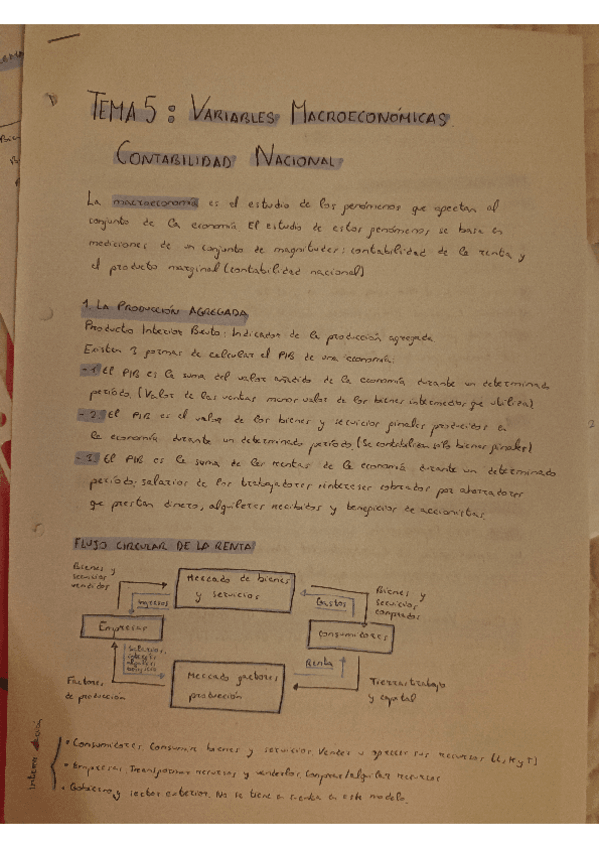 TEMA 5: VARIABLES MACROECONÓMICAS.
CONTABILIDAD NACIONAL
La macroeconomía es el estudio de los fenómenos que afectan al
conjunto de la economía. El estudio de estos fenómenos se basa en
mediciones de un conjunto de magnitudes: contabilidad de la renta y
el producto marginal (contabilidad nacional)
1. LA PRODUCCIÓN AGREGADA
Producto Interior Bruto: Indicador de la producción agregada
Existen 3 formas de calcular el PIB de una economía:
- 1 El PIB es la suma del valor añadido de la economía durante un determinado
período. (Valor de las ventas menos valor de los bienes intermedios que utiliza)
- 2 El PIB es el valor de los bienes y servicios finales producidos en
la economía durante un determinado período. (Se contabilizan sólo bienes finales)
- 3 El PIB es la suma de las rentas de la economía durante un determinado
período: salarios de los trabajadores, intereses cobrados por ahorradores
que prestan dinero, alquileres recibidos y beneficios de accionistas.
FLUJO CIRCULAR DE LA RENTA
Bienes y
servicios
vendidos
Mercado de bienes
y servicios
Bienes y
servicios
comprados
Ingresos
Gastos
Empresas
Consumidores
Salarios,
alquileres
Renta
Factores
de producción
Mercado factores
producción
Tierra, trabajo
y capital
• Consumidores. Consumir bienes y servicios. Vender u ofrecer sus recursos (L, K y T)
• Empresas. Transforman recursos y venderlos. Comprar/alquilar recursos
• Gobierno y sector exterior. No se tiene en cuenta en este modelo.